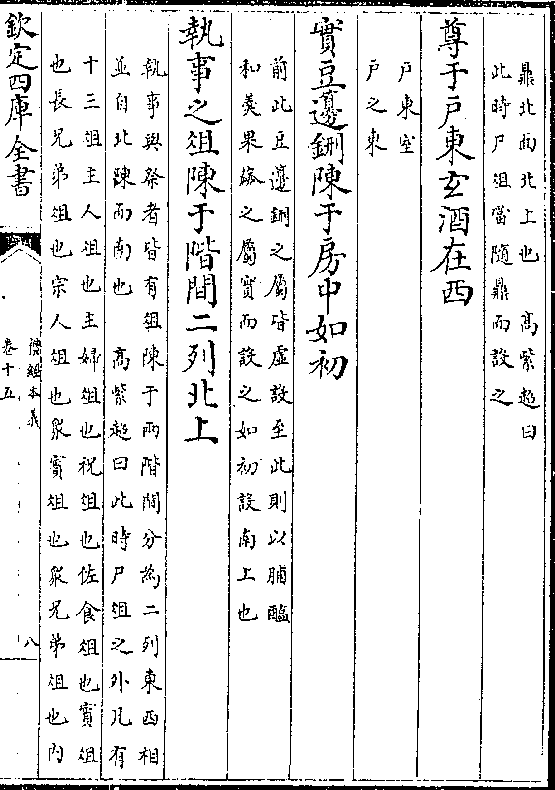 鼎北面北上也　高紫超曰
此時尸俎當隨鼎而設之
尊于戸東玄酒在西
戸東室
戸之東
實豆籩鉶陳于房中如初
前此豆籩鉶之屬皆虛設至此則以脯醢
和羹果蓏之屬實而設之如初設南上也
執事之俎陳于階間二列北上
執事與祭者皆有俎陳于兩階間分為二列東西相
並自北陳而南也　高紫超曰此時尸俎之外凡有
十三俎主人俎也主婦俎也祝俎也佐食俎也賓俎
也長兄弟俎也宗人俎也衆賓俎也衆兄弟俎也内
欽定四庫全書
儀禮本義
卷十五
八